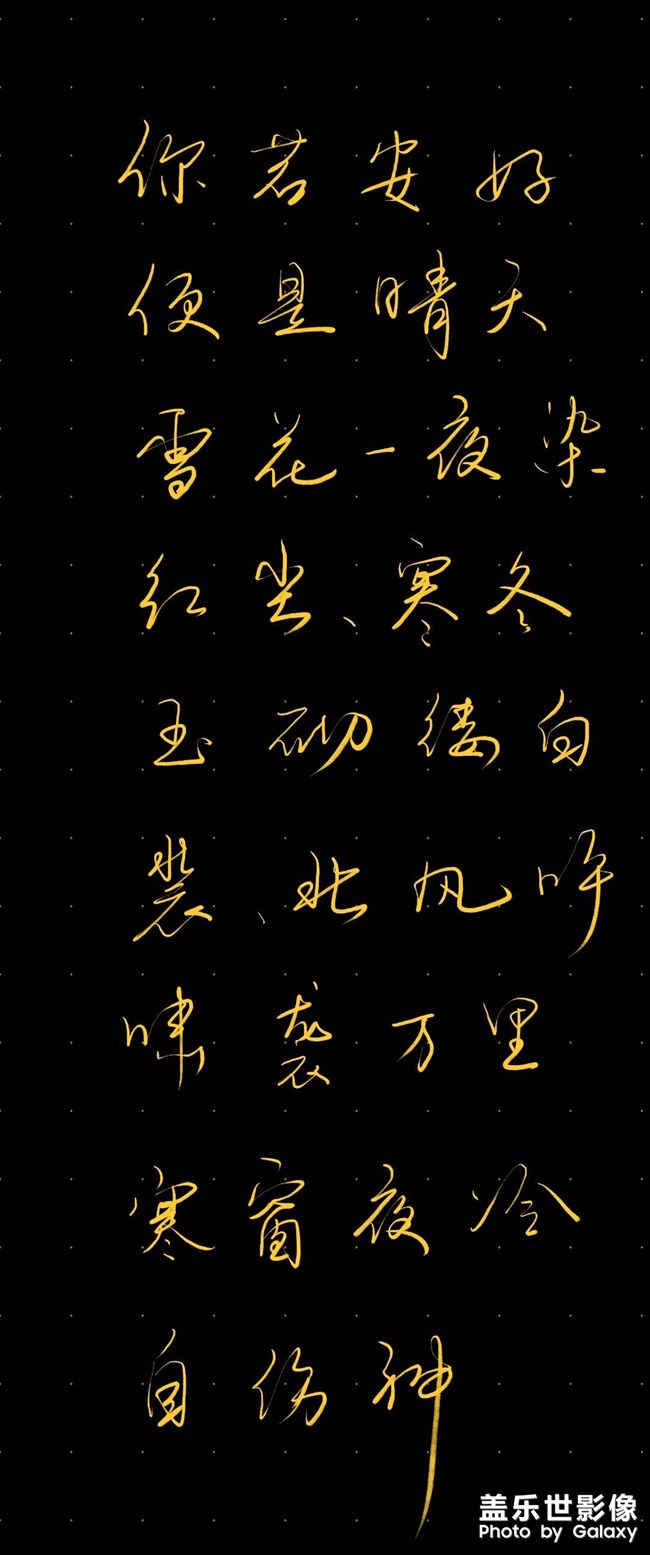 你若安好
便是晴天
雪花一夜染
红尘、寒冬
玉砌缕白
装、北风呼
啸袭万里
寒窗夜冷
自伤神
盖乐世影像
Photo by Galaxy